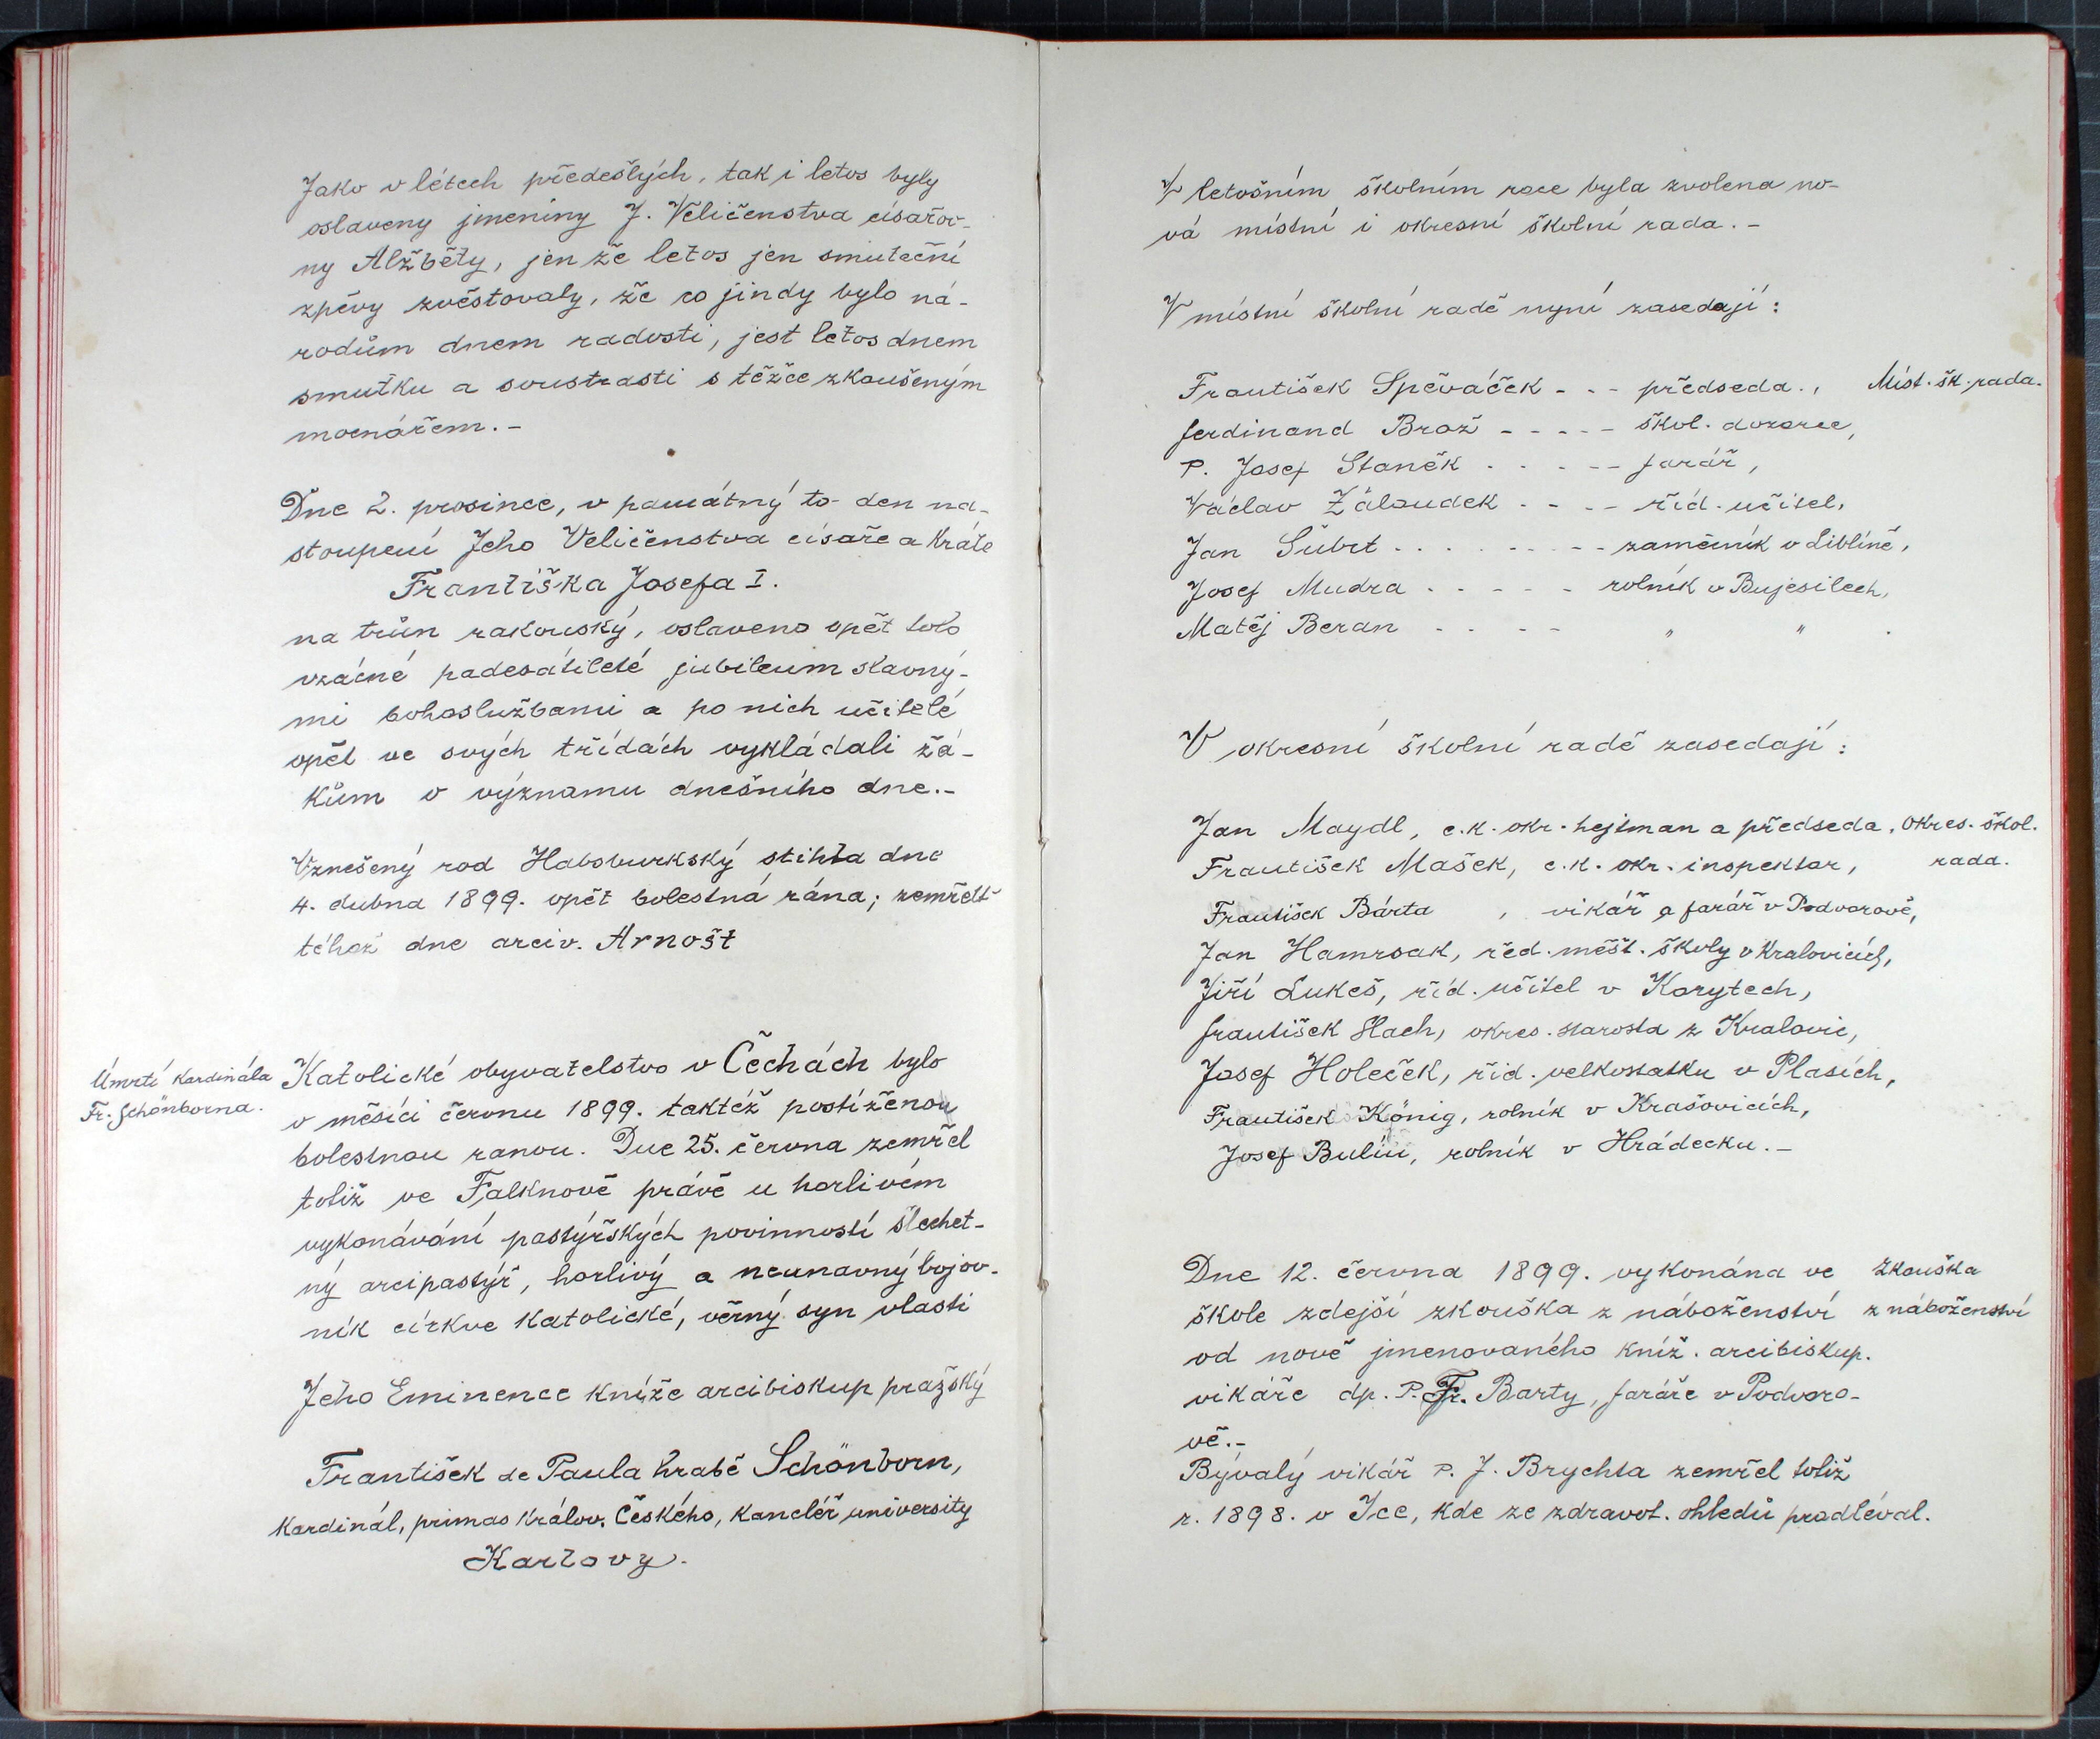 Jako v létech předešlých, tak i letos byly
oslaveny jmeniny J. Veličenstva císařov-
ny Alžběty, jen že letos jen smuteční
zpěvy zvěstovaly, že co jindy bylo ná-
rodům dnem radosti, jest letos dnem
smutku a soustrasti s těžce zkoušeným
mocnářem.-
Dne 2. prosince, v památný to den na-
stoupení Jeho Veličenstva císaře a krále
Františka Josefa I.
na trůn rakouský, oslaveno opět toto
vzácné padesátileté jubileum slavný-
mi bohoslužbami a po nich učitelé
opět ve svých třídách vykládali žá-
kům o významu dnešního dne.-
Vznešený rod Habsburkský stihla dne
4. dubna 1899. opět bolestná rána; zemřelť
téhož dne arciv. Arnošt
Úmrtí kardinála
Fr. Schönborna.
Katolické obyvatelstvo v Čechách bylo
v měsíci červnu 1899. taktéž postiženou
bolestnou ranou. Dne 25. června zemřel
totiž ve Falknově právě u horlivém
vykonávání pastýřských povinností šlechet-
ný arcipastýř, horlivý a neunavný bojov-
ník církve katolické, věrný syn vlasti
Jeho Eminence kníže arcibiskup pražský
František de Paula hrabě Schönborn,
kardinál, primas králov. Českého, kancléř university
Karlovy.
V letošním školním roce byla zvolena no-
vá místní i okresní školní rada.-
V místní školní radě nyní zasedají:
František Spěváček - - - předseda.,
Míst. šk. rada.
Ferdinand Brož - - - - - škol. dozorce,
P. Josef Staněk - - - - - farář,
Václav Žáloudek - - - - říd. učitel,
Jan Šubrt . . . . - - - - zámečník v Liblíně,
Josef Mudra - - - - - rolník v Bujesilech,
Matěj Beran - - - - " " .
V okresní školní radě zasedají:
Jan Maydl, c.k. okr. hejtman a předseda,
Okres. škol.
rada.
František Mašek, c.k. okr. inspektor,
František Bárta , vikář a farář v Podvorově,
Jan Hamrsak, řed. měšt. školy v Kralovicích,
Jiří Lukeš, říd. učitel v Korytech,
František Hach, okres. starosta z Kralovic,
Josef Holeček, říd. velkostatku v Plasích,
František König, rolník v Krašovicích,
Josef Bulín, rolník v Hrádecku.-
Dne 12. června 1899. vykonána ve
škole zdejší zkouška z náboženství
od nově jmenovaného kníž. arcibiskup.
vikáře dp. P. Fr. Barty, faráře v Podvoro-
vě.-
Zkouška
z náboženství
Bývalý vikář P. J. Brychta zemřel totiž
r. 1898. v Ice, kde ze zdravot. ohledů prodléval.